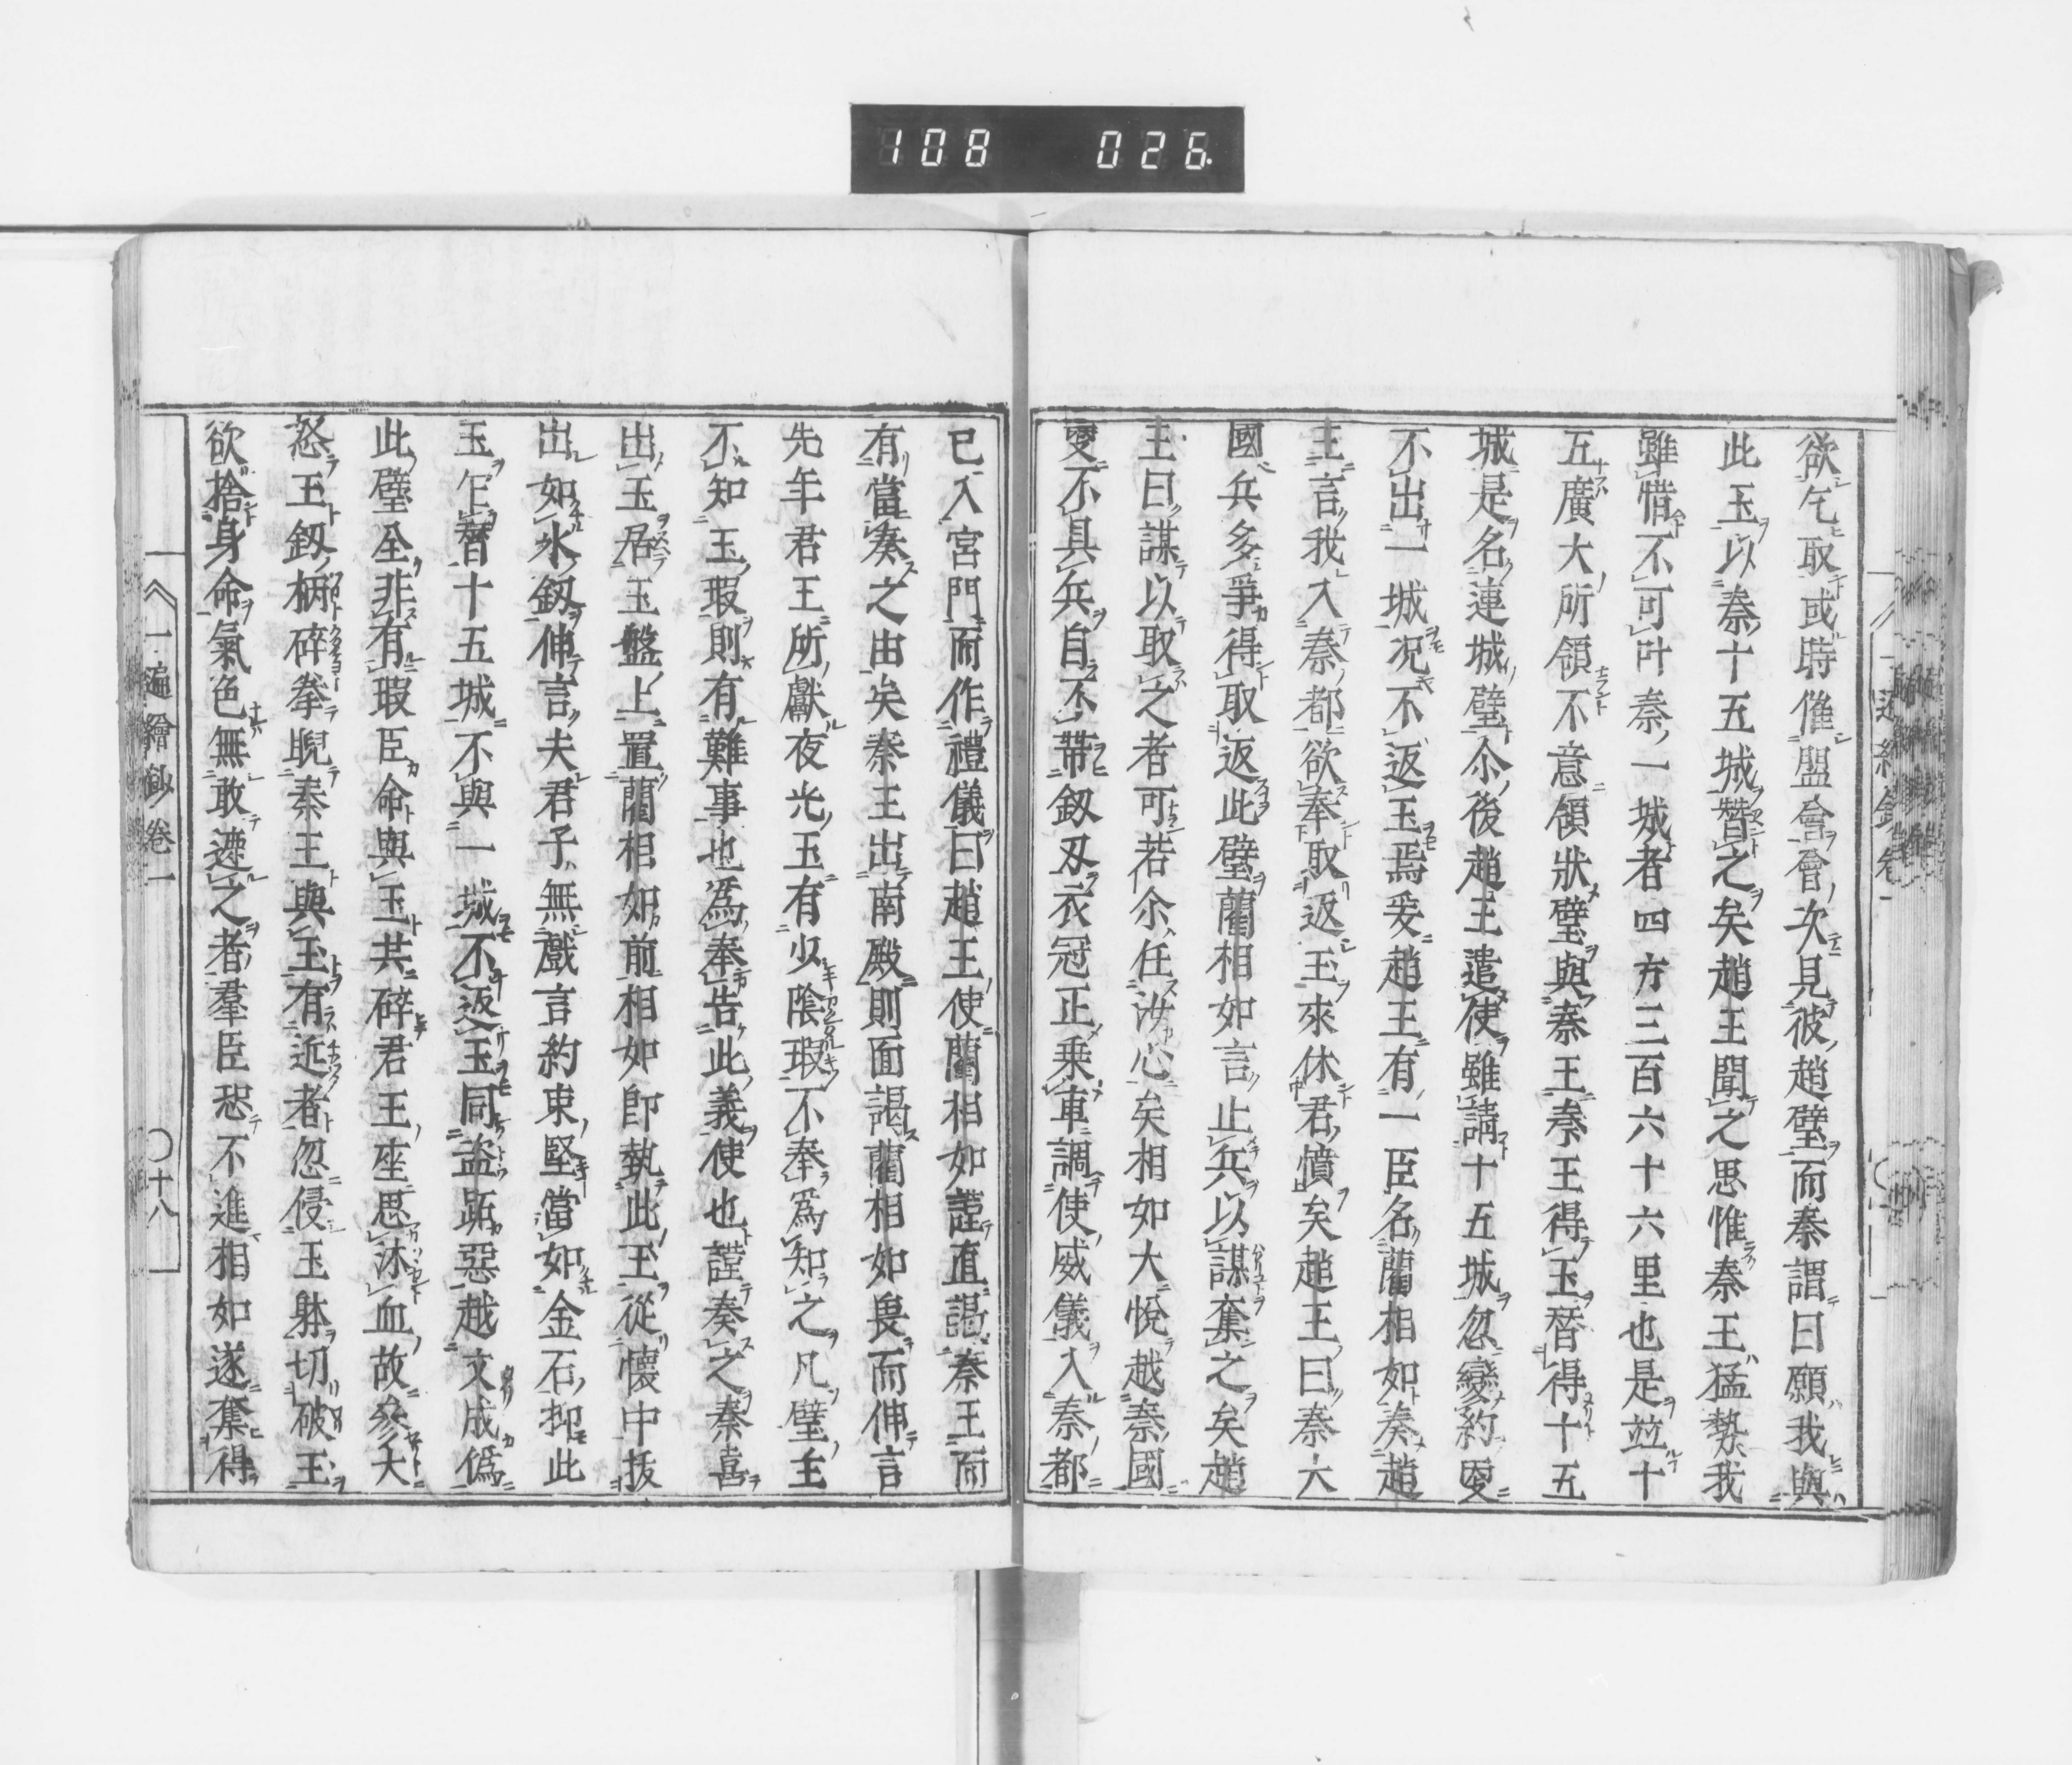 108 026
欲乞取或時催盟會會次見彼趙璧而秦謂曰願我與
此玉以秦十五城替之矣趙王聞之思惟秦王猛勢我
雖惜不可叶秦一城者四方三百六十六里也是並十
五廣大所領不意領狀璧與秦王秦王得玉替得十五
城是名連城璧尒後趙王遣使雖請十五城忽變約爰
不出一城况不返玉焉爰趙王有一臣名藺相如奏趙
王言我入秦都欲奉取返玉來休君憤矣趙王曰秦六
國兵多爭得取返此璧藺相如言止兵以謀奪之矣趙
王曰謀以取之者可若尒任汝心矣相如大悅越秦國
爰不具兵自不帶釼刄衣冠正乗車調使威儀入秦都
已入宮門而作禮儀曰趙王使藺相如謹直謁秦王而
有當奏之由矣秦王出南殿則面謁藺相如畏而伸言
先年君王所獻夜光玉有少陰瑕不奉爲知之凡璧主
不知玉瑕則有難事也爲奉告此義使也謹奏之秦喜
出玉居玉盤上置藺相如前相如即執此玉從懷中拔
出如氷釼伸言夫君子無戲言約束堅當如金石抑此
玉乍替十五城不與一城不返玉同盗跖惡越文成僞
此璧全非有瑕臣命與玉共碎君王座思沐血故參大
怒玉釼柄碎拳睨秦王與玉有近者忽侵玉躰切破玉
欲捨身命氣色無敢遮之者羣臣恐不進相如遂奪得
一遍繪鈔卷一
〇十八